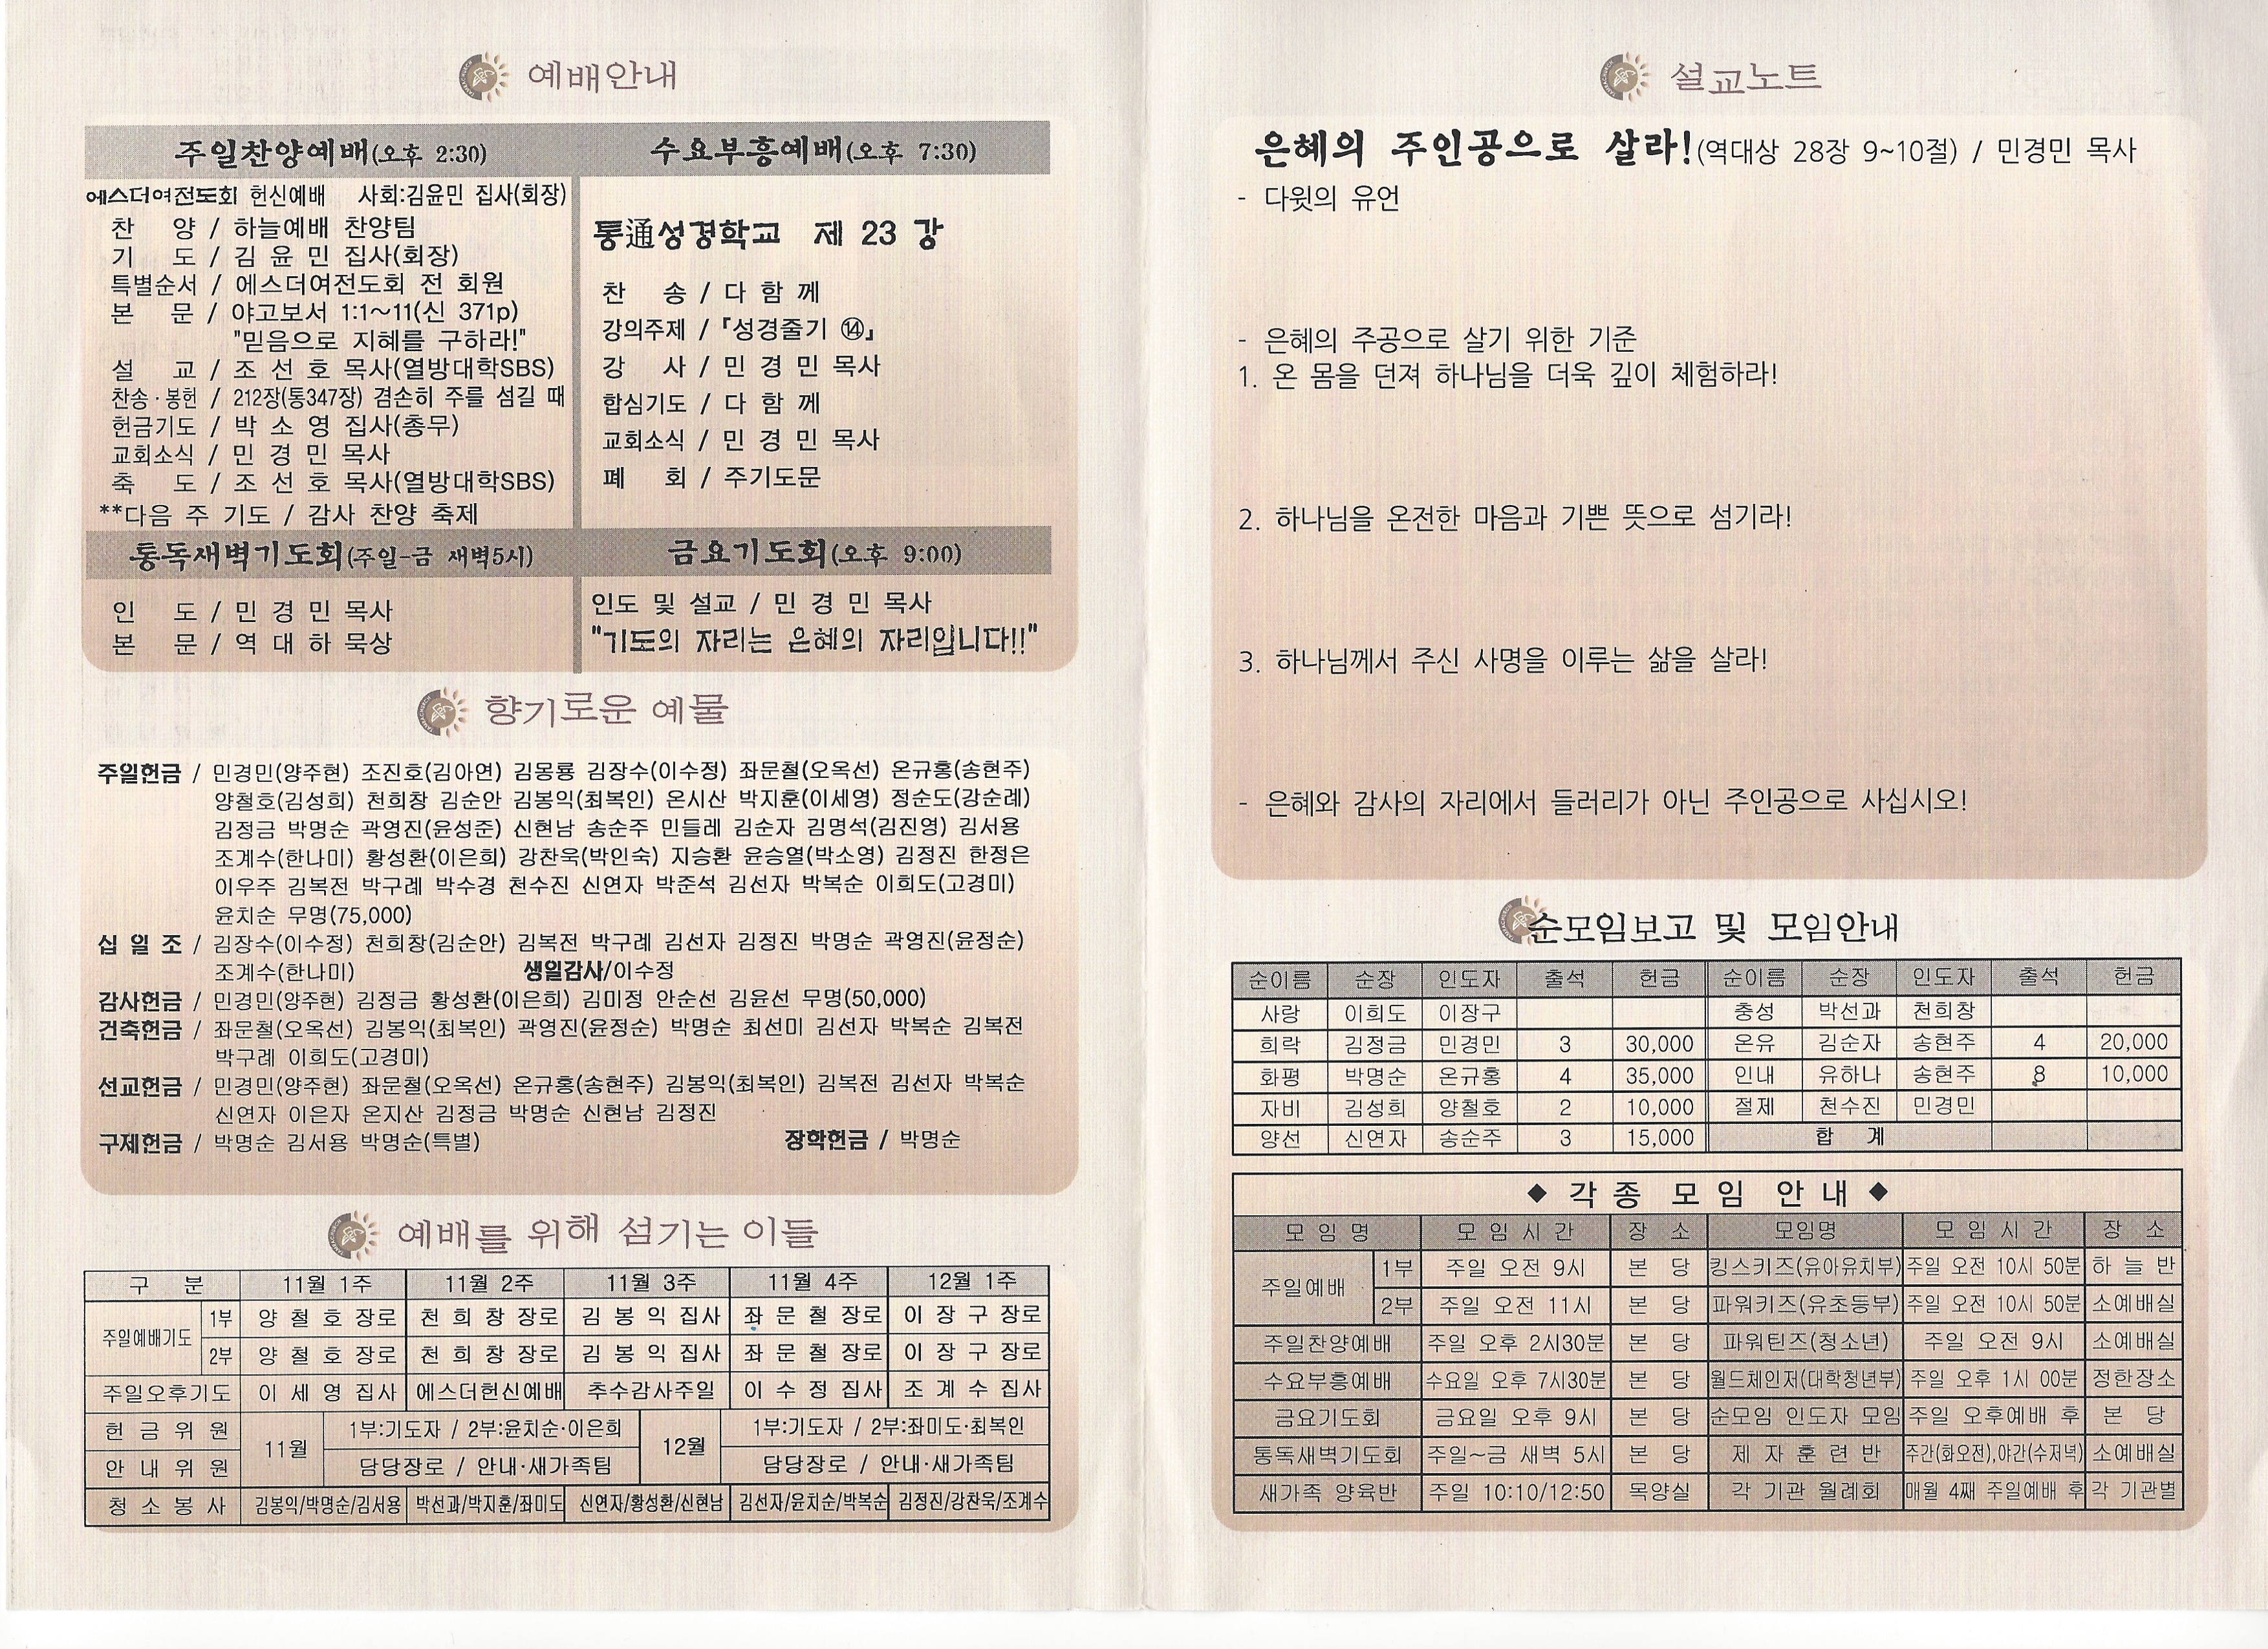 예배안내
주일찬양예배(오후 2:30)
에스더여전도회 헌신예배 사회:김윤민 집사(회장)
찬 양 / 하늘예배 찬양팀
기 도 / 김 윤 민 집사(회장)
특별순서 / 에스더여전도회 전 회원
본 문 / 야고보서 1:1~11(신 371p)
"믿음으로 지혜를 구하라!"
설 교 / 조 선 호 목사(열방대학SBS)
찬송·봉헌 / 212장(통347장) 겸손히 주를 섬길 때
헌금기도 / 박 소 영 집사(총무)
교회소식 / 민 경 민 목사
축 도 / 조 선 호 목사(열방대학SBS)
**다음 주 기도 / 감사 찬양 축제
수요부흥예배(오후 7:30)
통通성경학교 제 23 강
찬 송 / 다 함 께
강의주제 / 『성경줄기 ⑭』
강 사 / 민 경 민 목사
합심기도 / 다 함 께
교회소식 / 민 경 민 목사
폐 회 / 주기도문
통독새벽기도회(주일-금 새벽5시)
인 도 / 민 경 민 목사
본 문 / 역 대 하 묵상
금요기도회(오후 9:00)
인도 및 설교 / 민 경 민 목사
"기도의 자리는 은혜의 자리입니다!!"
향기로운 예물
주일헌금 / 민경민(양주현) 조진호(김아연) 김몽룡 김장수(이수정) 좌문철(오옥선) 온규홍(송현주)
양철호(김성희) 천희창 김순안 김봉익(최복인) 온시산 박지훈(이세영) 정순도(강순례)
김정금 박명순 곽영진(윤성준) 신현남 송순주 민들레 김순자 김명석(김진영) 김서용
조계수(한나미) 황성환(이은희) 강찬욱(박인숙) 지승환 윤승열(박소영) 김정진 한정은
이우주 김복전 박구례 박수경 천수진 신연자 박준석 김선자 박복순 이희도(고경미)
윤치순 무명(75,000)
십 일 조 / 김장수(이수정) 천희창(김순안) 김복전 박구례 김선자 김정진 박명순 곽영진(윤정순)
조계수(한나미) 생일감사/이수정
감사헌금 / 민경민(양주현) 김정금 황성환(이은희) 김미정 안순선 김윤선 무명(50,000)
건축헌금 / 좌문철(오옥선) 김봉익(최복인) 곽영진(윤정순) 박명순 최선미 김선자 박복순 김복전
박구례 이희도(고경미)
선교헌금 / 민경민(양주현) 좌문철(오옥선) 온규홍(송현주) 김봉익(최복인) 김복전 김선자 박복순
신연자 이은자 온지산 김정금 박명순 신현남 김정진
구제헌금 / 박명순 김서용 박명순(특별) 장학헌금 / 박명순
예배를 위해 섬기는 이들
구 분 11월 1주 11월 2주 11월 3주 11월 4주 12월 1주
주일예배기도 1부 양 철 호 장로 천 희 창 장로 김 봉 익 집사 좌 문 철 장로 이 장 구 장로
2부 양 철 호 장로 천 희 창 장로 김 봉 익 집사 좌 문 철 장로 이 장 구 장로
주일오후기도 이 세 영 집사 에스더헌신예배 추수감사주일 이 수 정 집사 조 계 수 집사
헌 금 위 원 11월 1부:기도자 / 2부:윤치순·이은희 12월 1부:기도자 / 2부:좌미도·최복인
안 내 위 원 담당장로 / 안내·새가족팀 담당장로 / 안내·새가족팀
청 소 봉 사 김봉익/박명순/김서용 박선과/박지훈/좌미도 신연자/황성환/신현남 김선자/윤치순/박복순 김정진/강찬욱/조계수
설교노트
은혜의 주인공으로 살라!(역대상 28장 9~10절) / 민경민 목사
- 다윗의 유언
- 은혜의 주공으로 살기 위한 기준
1. 온 몸을 던져 하나님을 더욱 깊이 체험하라!
2. 하나님을 온전한 마음과 기쁜 뜻으로 섬기라!
3. 하나님께서 주신 사명을 이루는 삶을 살라!
- 은혜와 감사의 자리에서 들러리가 아닌 주인공으로 사십시오!
순모임보고 및 모임안내
순이름 순장 인도자 출석 헌금 순이름 순장 인도자 출석 헌금
사랑 이희도 이장구 충성 박선과 천희창
희락 김정금 민경민 3 30,000 온유 김순자 송현주 4 20,000
화평 박명순 온규홍 4 35,000 인내 유하나 송현주 8 10,000
자비 김성희 양철호 2 10,000 절제 천수진 민경민
양선 신연자 송순주 3 15,000 합 계
◆ 각 종 모 임 안 내 ◆
모 임 명 모 임 시 간 장 소 모임명 모 임 시 간 장 소
주일예배 1부 주일 오전 9시 본 당 킹스키즈(유아유치부) 주일 오전 10시 50분 하 늘 반
2부 주일 오전 11시 본 당 파워키즈(유초등부) 주일 오전 10시 50분 소예배실
주일찬양예배 주일 오후 2시30분 본 당 파워틴즈(청소년) 주일 오전 9시 소예배실
수요부흥예배 수요일 오후 7시30분 본 당 월드체인저(대학청년부) 주일 오후 1시 00분 정한장소
금요기도회 금요일 오후 9시 본 당 순모임 인도자 모임 주일 오후예배 후 본 당
통독새벽기도회 주일~금 새벽 5시 본 당 제 자 훈 련 반 주간(화오전),야간(수저녁) 소예배실
새가족 양육반 주일 10:10/12:50 목양실 각 기관 월례회 매월 4째 주일예배 후 각 기관별